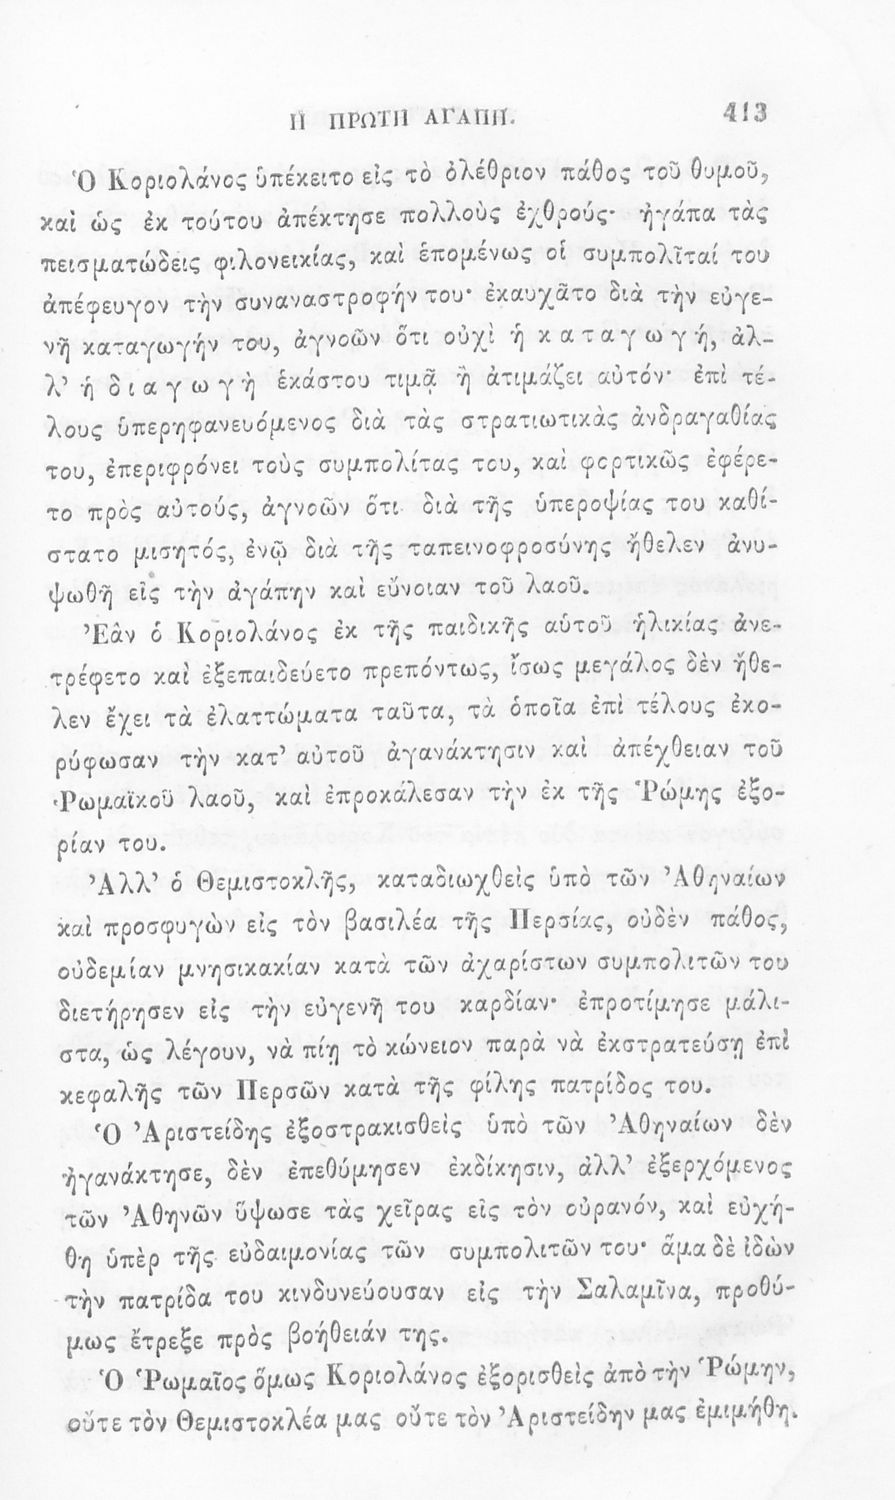 Η ΠΡΩΤΗ ΑΓΑΠΗ. 413
Ὁ Κοριολάνος ὑπέκειτο εἰς τὸ ὀλέθριον πάθος τοῦ θυμοῦ,
καὶ ὡς ἐκ τούτου ἀπέκτησε πολλοὺς ἐχθρούς· ἠγάπα τὰς
πεισματώδεις φιλονεικίας, καὶ ἑπομένως οἱ συμπολῖταί του
ἀπέφευγον τὴν συναναστροφήν του· ἐκαυχᾶτο διὰ τὴν εὐγε-
νῆ καταγωγήν του, ἀγνοῶν ὅτι οὐχὶ ἡ κ α τ α γ ω γ ή, ἀλ-
λ’ ἡ δ ι α γ ω γ ὴ ἑκάστου τιμᾷ ἢ ἀτιμάζει αὐτόν· ἐπὶ τέ-
λους ὑπερηφανευόμενος διὰ τὰς στρατιωτικὰς ἀνδραγαθίας
του, ἐπεριφρόνει τοὺς συμπολίτας του, καὶ φορτικῶς ἐφέρε-
το πρὸς αὐτούς, ἀγνοῶν ὅτι διὰ τῆς ὑπεροψίας του καθί-
στατο μισητός, ἐνῷ διὰ τῆς ταπεινοφροσύνης ἤθελεν ἀνυ-
ψωθῆ εἰς τὴν ἀγάπην καὶ εὔνοιαν τοῦ λαοῦ.
Ἐὰν ὁ Κοριολάνος ἐκ τῆς παιδικῆς αὑτοῦ ἡλικίας ἀνε-
τρέφετο καὶ ἐξεπαιδεύετο πρεπόντως, ἴσως μεγάλος δὲν ἤθε-
λεν ἔχει τὰ ἐλαττώματα ταῦτα, τὰ ὁποῖα ἐπὶ τέλους ἐκο-
ρύφωσαν τὴν κατ’ αὐτοῦ ἀγανάκτησιν καὶ ἀπέχθειαν τοῦ
Ῥωμαϊκοῦ λαοῦ, καὶ ἐπροκάλεσαν τὴν ἐκ τῆς Ῥώμης ἐξο-
ρίαν του.
Ἀλλ’ ὁ Θεμιστοκλῆς, καταδιωχθεὶς ὑπὸ τῶν Ἀθηναίων
καὶ προσφυγὼν εἰς τὸν βασιλέα τῆς Περσίας, οὐδὲν πάθος,
οὐδεμίαν μνησικακίαν κατὰ τῶν ἀχαρίστων συμπολιτῶν του
διετήρησεν εἰς τὴν εὐγενῆ του καρδίαν· ἐπροτίμησε μάλι-
στα, ὡς λέγουν, νὰ πίῃ τὸ κώνειον παρὰ νὰ ἐκστρατεύσῃ ἐπὶ
κεφαλῆς τῶν Περσῶν κατὰ τῆς φίλης πατρίδος του.
Ὁ Ἀριστείδης ἐξοστρακισθεὶς ὑπὸ τῶν Ἀθηναίων δὲν
ἠγανάκτησε, δὲν ἐπεθύμησεν ἐκδίκησιν, ἀλλ’ ἐξερχόμενος
τῶν Ἀθηνῶν ὕψωσε τὰς χεῖρας εἰς τὸν οὐρανόν, καὶ εὐχή-
θη ὑπὲρ τῆς εὐδαιμονίας τῶν συμπολιτῶν του· ἅμα δὲ ἰδὼν
τὴν πατρίδα του κινδυνεύουσαν εἰς τὴν Σαλαμῖνα, προθύ-
μως ἔτρεξε πρὸς βοήθειάν της.
Ὁ Ῥωμαῖος ὅμως Κοριολάνος ἐξορισθεὶς ἀπὸ τὴν Ῥώμην,
οὔτε τὸν Θεμιστοκλέα μας οὔτε τὸν Ἀριστείδην μας ἐμιμήθη.